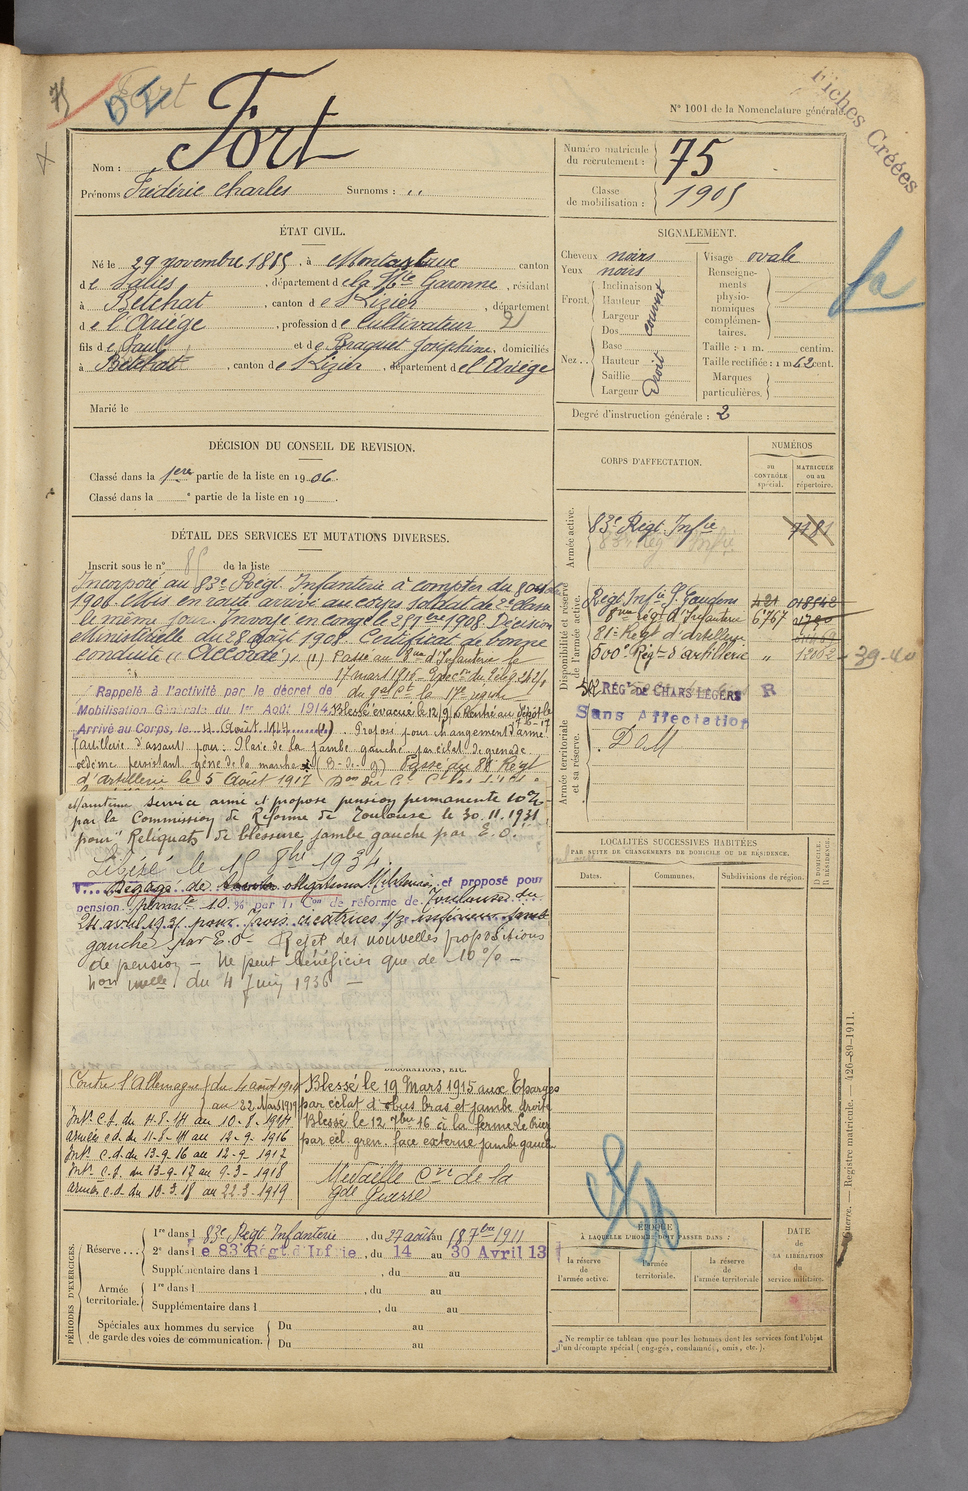 75
Fort
N° 1001 de la Nomenclature générale.
Fiches Créées
Nom : Fort
Prénoms Frédéric Charles Surnoms : ,,
Numéro matricule du recrutement : 75
Classe de mobilisation : 1905
ÉTAT CIVIL.
Né le 29 novembre 1885, à Montastruc canton
de Salies, département de la Hte Garonne, résidant
à Betchat, canton de St Lizier, département
de l'Ariège, profession de Cultivateur
fils de Paul et de Braquet Joséphine, domiciliés
à Betchat, canton de St Lizier, département de l'Ariège
Marié le
SIGNALEMENT.
Cheveux noirs
Yeux noirs
Front. Inclinaison Hauteur Largeur couvert
Nez.. Dos Base Hauteur Saillie Largeur Droit
Visage ovale
Renseignements physionomiques complémentaires.
Taille : 1 m. centim.
Taille rectifiée : 1 m 62 cent.
Marques particulières.
Degré d'instruction générale : 2
DÉCISION DU CONSEIL DE REVISION.
Classé dans la 1ere partie de la liste en 1906.
Classé dans la e partie de la liste en 19 .
CORPS D'AFFECTATION.
NUMÉROS
au CONTRÔLE spécial.
MATRICULE ou au répertoire.
Armée active.
83e Régt Infie
Disponibilité et réserve de l'armée active.
Régt Infie St Gaudens 421 018542
8me Rég. d'Infanterie 6767
81e Régt d'artillerie
500e Régt d'artillerie ,, 39-40
502 RÉGT DE CHARS LÉGERS R
Sans Affectation
Armée territoriale et sa réserve.
DÉTAIL DES SERVICES ET MUTATIONS DIVERSES.
Inscrit sous le n° 85 de la liste
Incorporé au 83e Régt. Infanterie à compter du 8 octobre
1906. Mis en route arrivé au corps soldat de 2e classe
le même jour. Envoyé en congé le 28 7bre 1908. Décision
Ministérielle du 28 août 1908. Certificat de bonne
conduite "Accordé". (1) Passé au 8me d'Infanterie le
17 mars 1910
du gal Ct la 17e région
Rappelé à l'activité par le décret de
Mobilisation Générale du 1er Août 1914. Blessé évacué le 12/9/16 Rentré au dépôt le
Arrivé au Corps, le 4 Août 1914 Proposé pour changement d'arme
(artillerie d'assaut) pour: Plaie de la jambe gauche par éclat de grenade.
œdème persistant gêne de la marche Passé au 81e Régt
d'artillerie le 5 Août 1917
Maintenu service armé et proposé pension permanente 10%
par la Commission de Réforme de Toulouse le 30.11.1931
pour "Reliquats de blessure jambe gauche par E.O.
Libéré le 15 8bre 1934.
Dégagé de obligations Militaires et proposé pour
pension permte 10 % par la Con de réforme de Toulouse du
24 avril 1931 pour Trois cicatrices 1/3 inférieur jambe
gauche par E.O. Rejet des nouvelles propositions
de pension - Ne peut bénéficier que de 10% -
du 4 Juin 1936 -
LOCALITÉS SUCCESSIVES HABITÉES
PAR SUITE DE CHANGEMENTS DE DOMICILE OU DE RÉSIDENCE.
Dates. Communes. Subdivisions de région. D DOMICILE. R RÉSIDENCE.
DÉCORATIONS, ETC.
Contre l'Allemagne du 4 août 1914
au 22 Mars 1919
Intr. C.S. du 4-8-14 au 10-8-1914
armées c.d. du 11-8-14 au 12-9-1916
Intr. c.d. du 13-9-16 au 12-9-1917
Intr. c.S. du 13-9-17 au 9-3-1918
armées c.d. du 10-3-18 au 22-3-1919
Blessé le 19 Mars 1915 aux Eparges
par éclat d'obus bras et jambe droite
Blessé le 12 7bre 16 à la ferme Le Priez
par écl. gren. face externe jambe gauche
Médaille Cve de la
Gde Guerre
PÉRIODES D'EXERCICES.
Réserve... 1re dans le 83e Régt Infanterie, du 27 août au 18 7bre 1911
2e dans le 83e Régt d'Infrie, du 14 au 30 Avril 13
Supplémentaire dans l , du au
Armée territoriale. 1re dans l , du au
Supplémentaire dans l , du au
Spéciales aux hommes du service de garde des voies de communication. Du au
Du au
ÉPOQUE
À LAQUELLE L'HOMME DOIT PASSER DANS :
la réserve de l'armée active.
l'armée territoriale.
la réserve de l'armée territoriale
DATE de LA LIBÉRATION du service militaire.
Ne remplir ce tableau que pour les hommes dont les services font l'objet
d'un décompte spécial (engagés, condamnés, omis, etc.).
Guerre. — Registre matricule. — 426-89-1911.